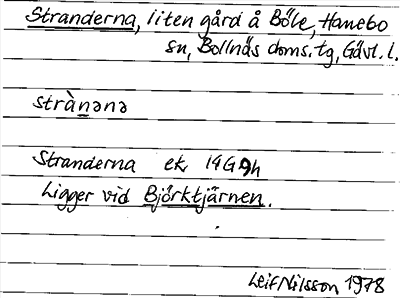 Stranderna, liten gård å Böle, Hanebo
sn, Bollnäs doms. tg, Gävl. l.
strànənə
Stranderna ek 14G9h
Ligger vid Björktjärnen.
Leif Nilsson 1978